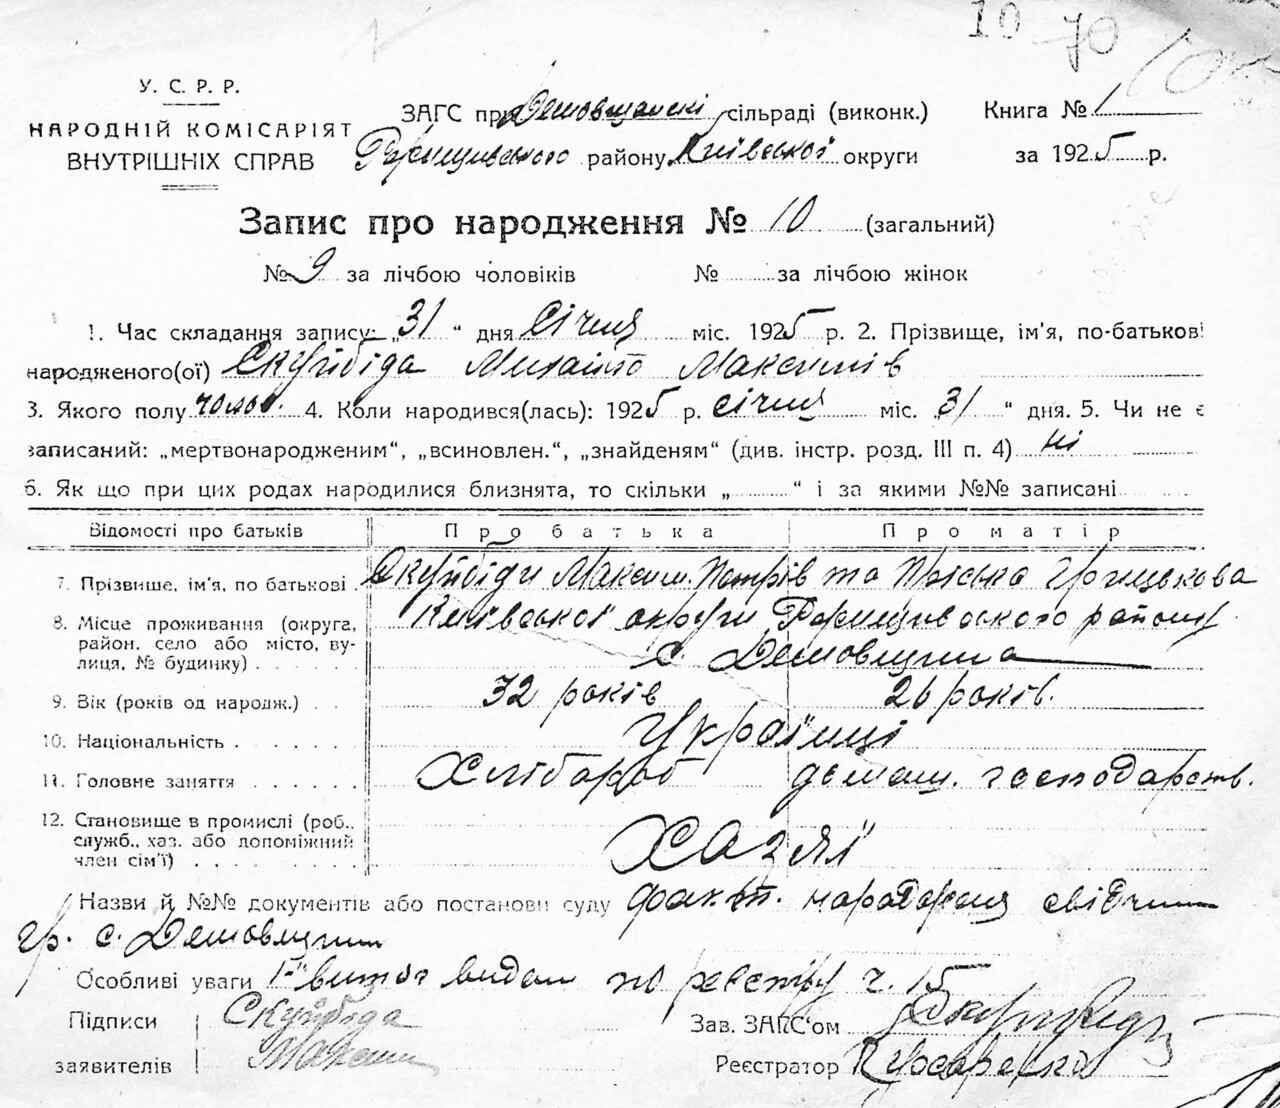 10 70
У. С. Р. Р.
НАРОДНІЙ КОМІСАРІЯТ
ВНУТРІШНІХ СПРАВ
ЗАГС при сільраді (виконк.)
району Київської округи
Книга № 1
за 1925 р.
Запис про народження № 10 (загальний)
№ 9 за лічбою чоловіків № за лічбою жінок
1. Час складання запису: „31“ дня Січня міс. 1925 р. 2. Прізвище, ім'я, по-батькові
народженого(ої) Скуйбіда Михайло Максимів
3. Якого полу чолов. 4. Коли народився(лась): 1925 р. січня міс. 31“ дня. 5. Чи не є
записаний: „мертвонародженим“, „всиновлен.“, „знайденям“ (див. інстр. розд. III п. 4) ні
6. Як що при цих родах народилися близнята, то скільки „ “ і за якими №№ записані
Відомості про батьків Про батька Про матір
7. Прізвище, ім'я, по батькові Скуйбіди Максим Петрів та Пріська Грицькова
8. Місце проживання (округа, район, село або місто, вулиця, № будинку) Київської округи району
с. Демовщина
9. Вік (років од народж.) 32 років 26 років.
10. Національність Україн'ці
11. Головне заняття Хлібороб домаш. господарств.
12. Становище в промислі (роб., служб., хаз. або допоміжний член сім'ї) Хазяї
Назви й №№ документів або постанови суду факт. народження свідчили
гр. с. Демовщини
Особливі уваги видан по реєстру ч. 15
Підписи заявителів Скуйбіда
Максим
Зав. ЗАГС'ом
Реєстратор